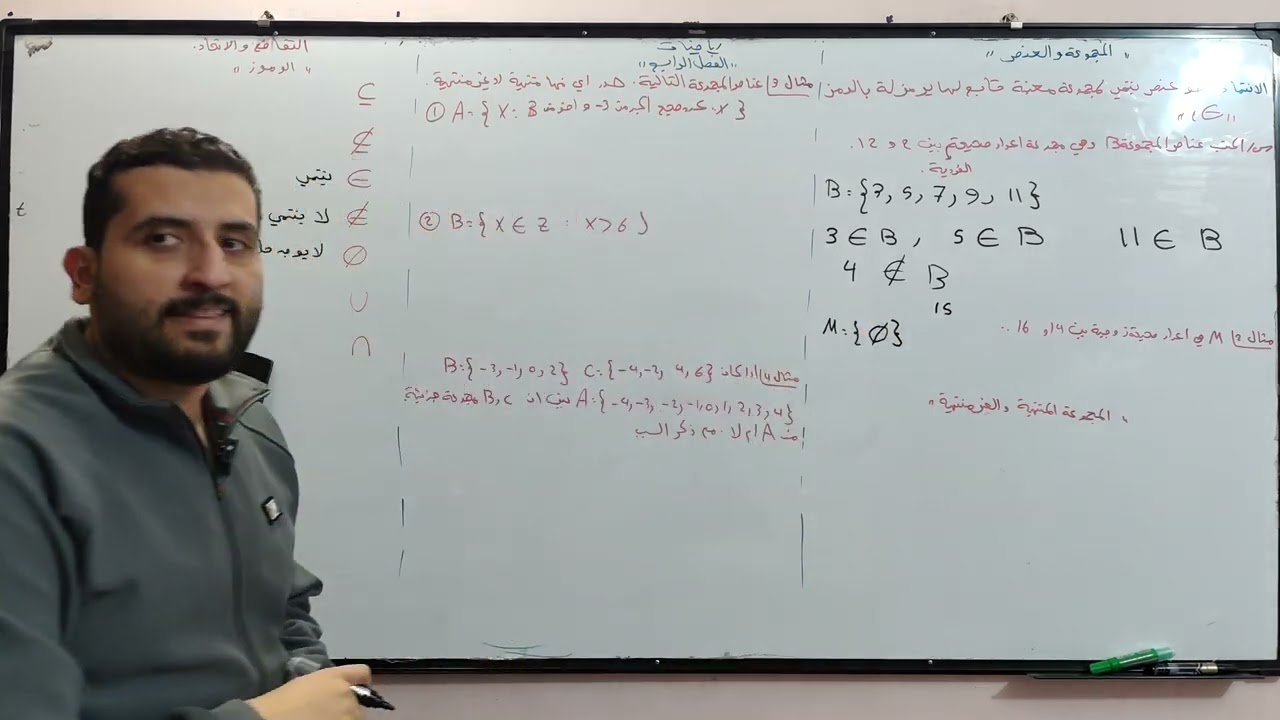 " المجموعة والعنصر "
عنصر ينتمي لمجموعة معينة تابع لها يرمز له بالرمز
" ∈ "
س/ اكتب عناصر المجموعة B وهي مجموعة اعداد صحيحة بين 2 و 12.
الفردية.
B={3, 5, 7, 9, 11}
3 ∈ B , 5 ∈ B 11 ∈ B
4 ∉ B
15
مثال 2/ M هي اعداد صحيحة زوجية بين 14 و 16 ..
M={∅}
" المجموعة المنتهية والغير منتهية "
رياضيات
" الفصل الرابع "
مثال 3/ عناصر المجموعة التالية. حدد اي منها منتهية او غير منتهية.
① A={ X : عدد صحيح اكبر من 3- و اصغر من B X }
② B={ X ∈ Z : X > 6 }
مثال 4/ اذا كان C={-4,-2, 4,6} B={-3,-1,0,2}
A={-4,-3,-2,-1,0,1,2,3,4} بين ان B,C مجموعة جزئية
من A ام لا. مع ذكر السبب
التقاطع والاتحاد.
" الرموز "
⊆
⊄
∈ ينتمي
∉ لا ينتمي
∅ لا يوجد
∪
∩